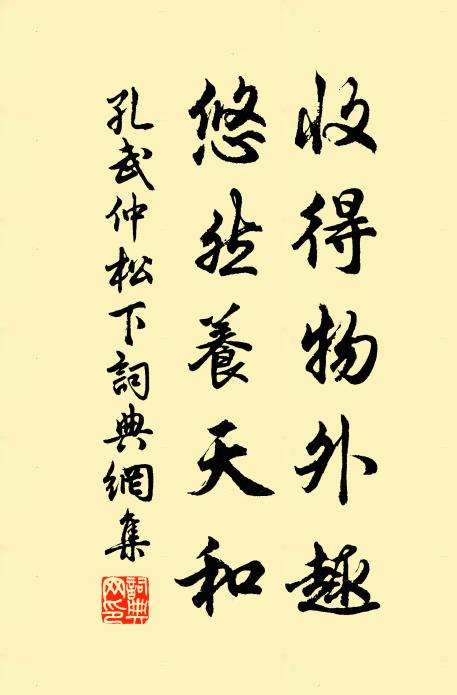 收得物外趣
悠然養天和
孔武仲松下詞典網集
詞典網印